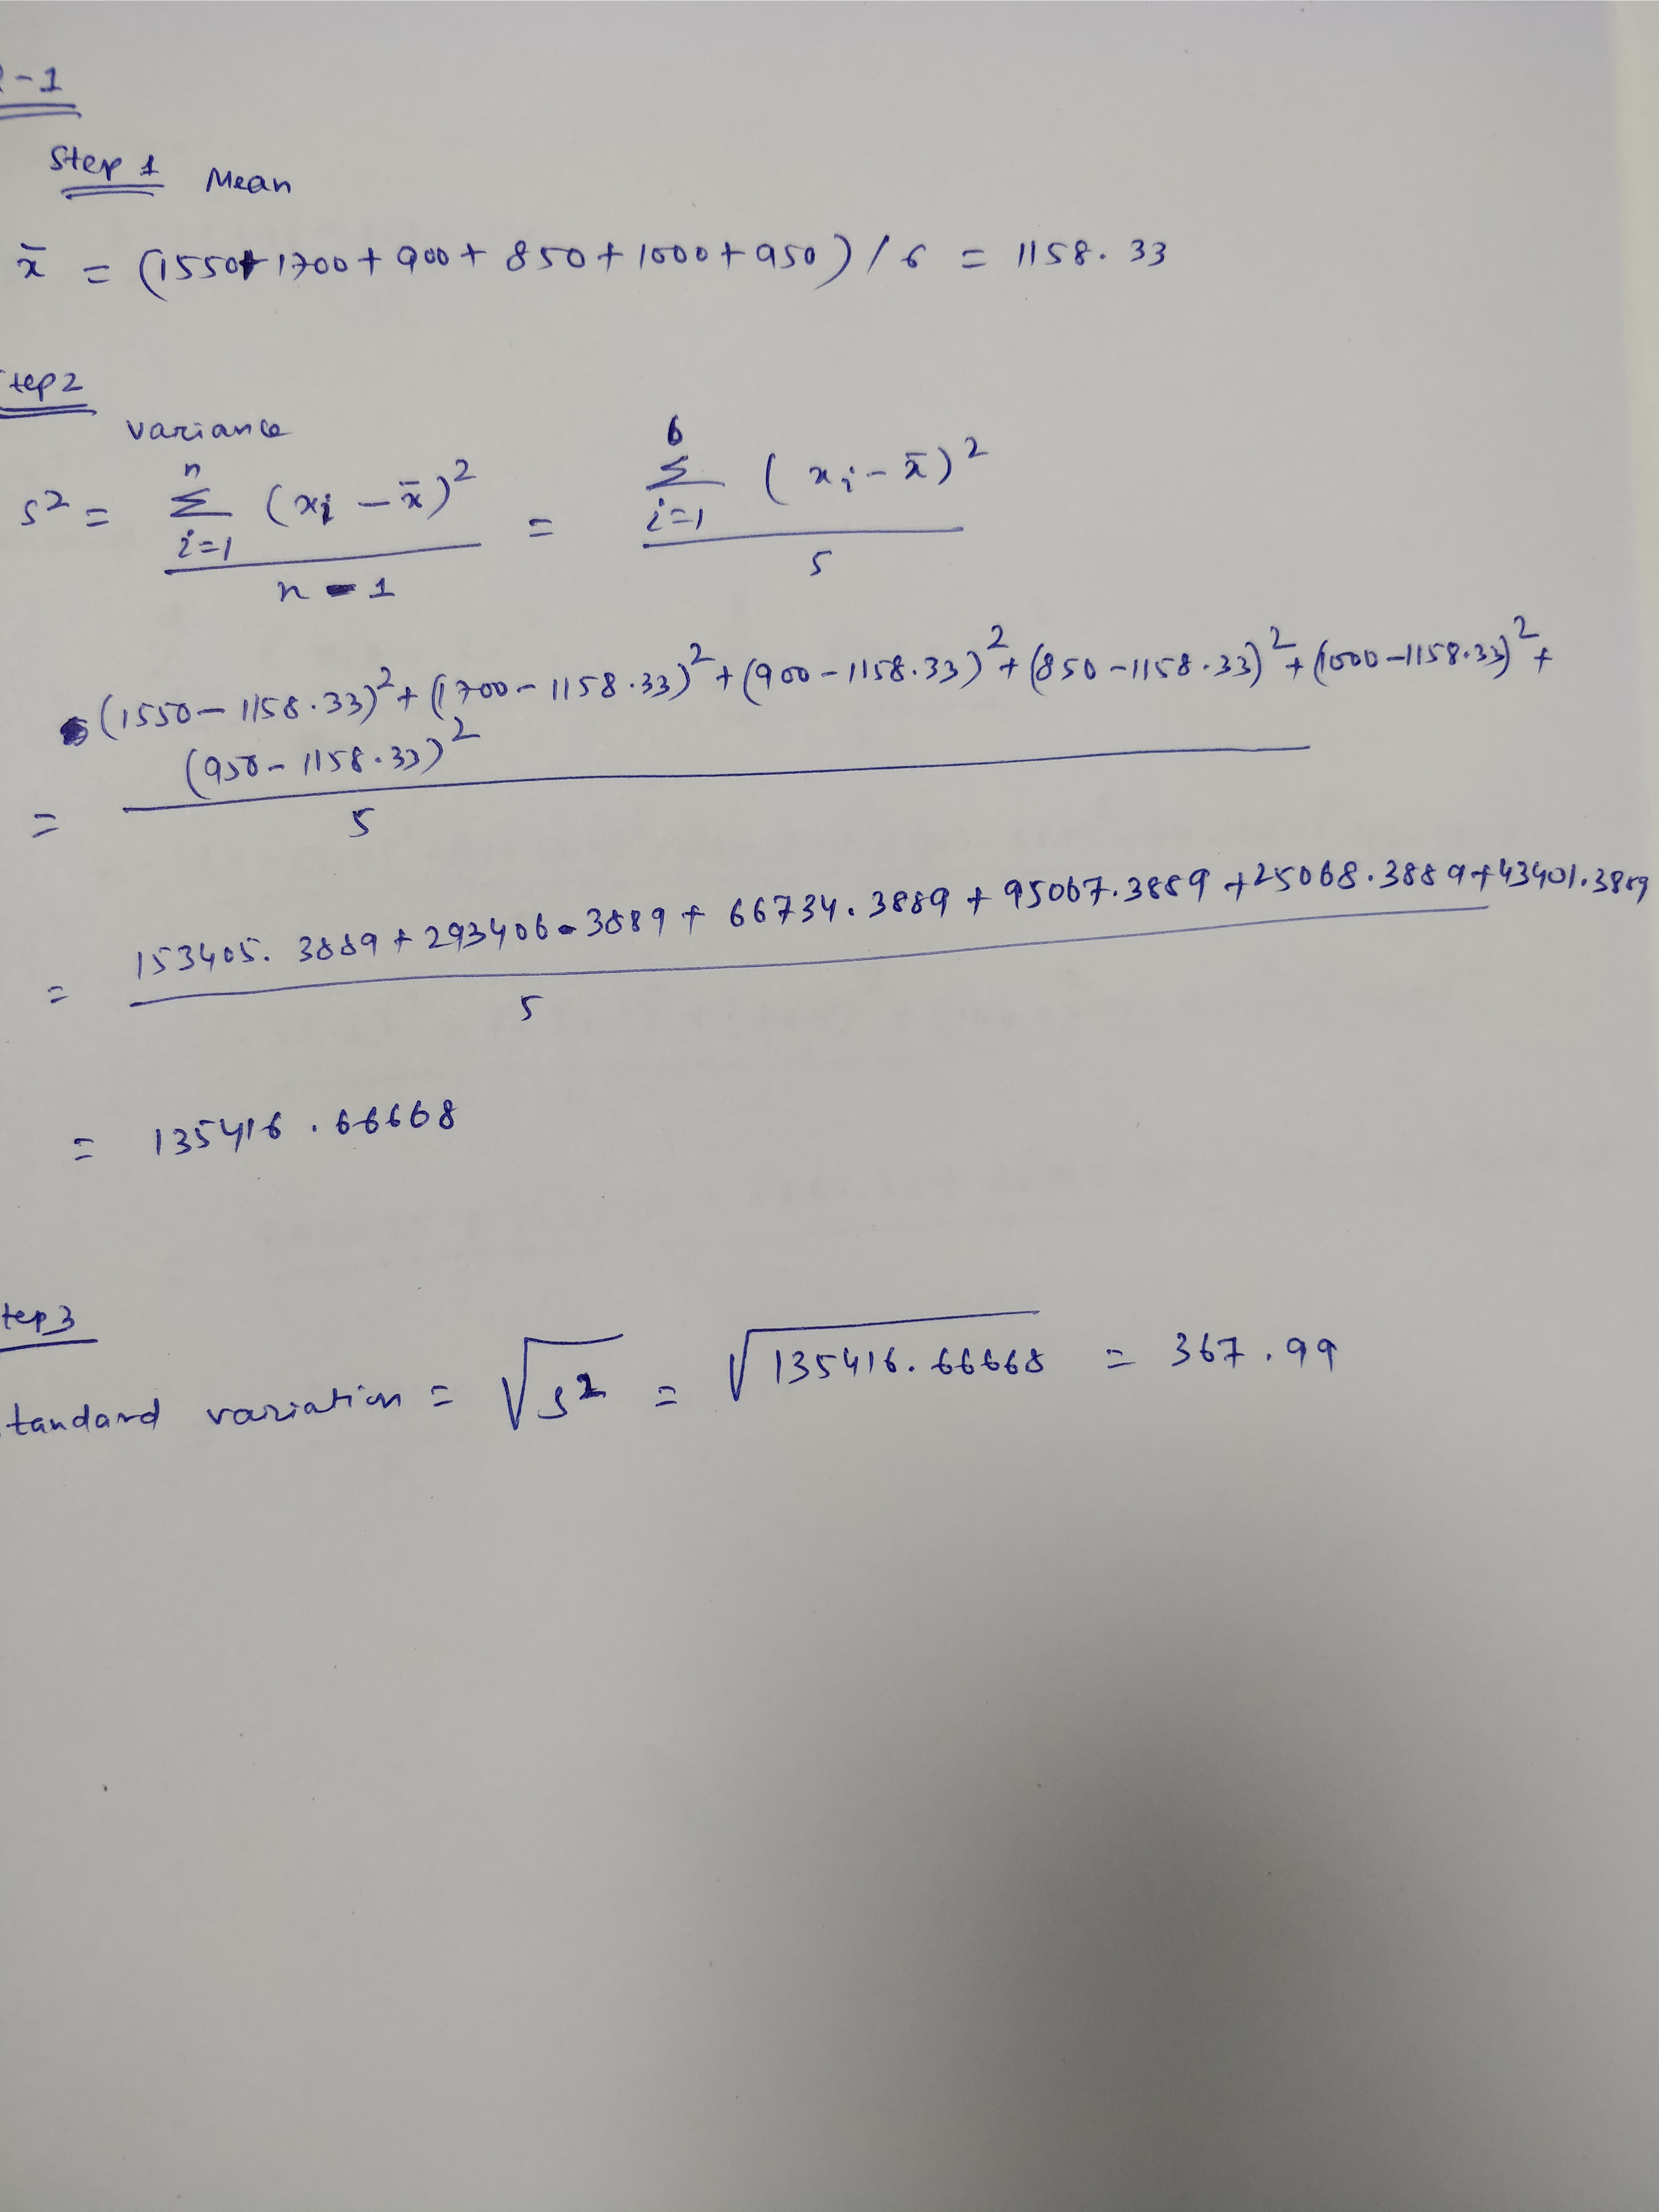 -1
Step 1 Mean
x̄ = (1550+1700+900+850+1000+950)/6 = 1158.33
tep2
variance
s² = Σ_{i=1}^{n} (xᵢ - x̄)² / n-1 = Σ_{i=1}^{6} (xᵢ - x̄)² / 5
(1550-1158.33)²+(1700-1158.33)²+(900-1158.33)²+(850-1158.33)²+(1000-1158.33)²+
(950-1158.33)²
= 5
153405.3889+293406.3889+66734.3889+95067.3889+25068.3889+43401.3889
= 5
= 135416.66668
tep3
tandard variation = √s² = √135416.66668 = 367.99